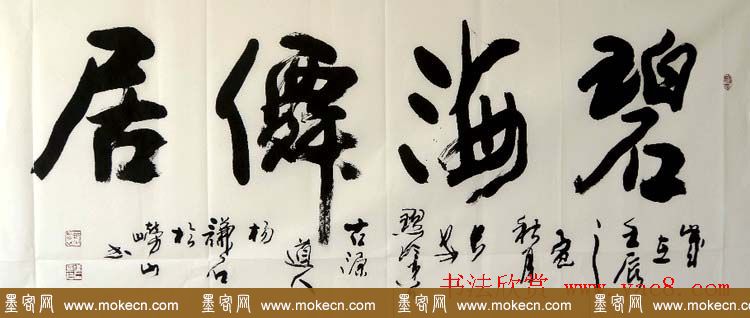 碧海僊居
歲在
壬辰
之
秋月
古源
道人
楊
謙名
於
嶗山
书
书法欣赏 www.yac8.com
墨客网 www.mokecn.com 墨客网 www.mokecn.com 墨客网 www.mokecn.com 墨客网 www.mokecn.com